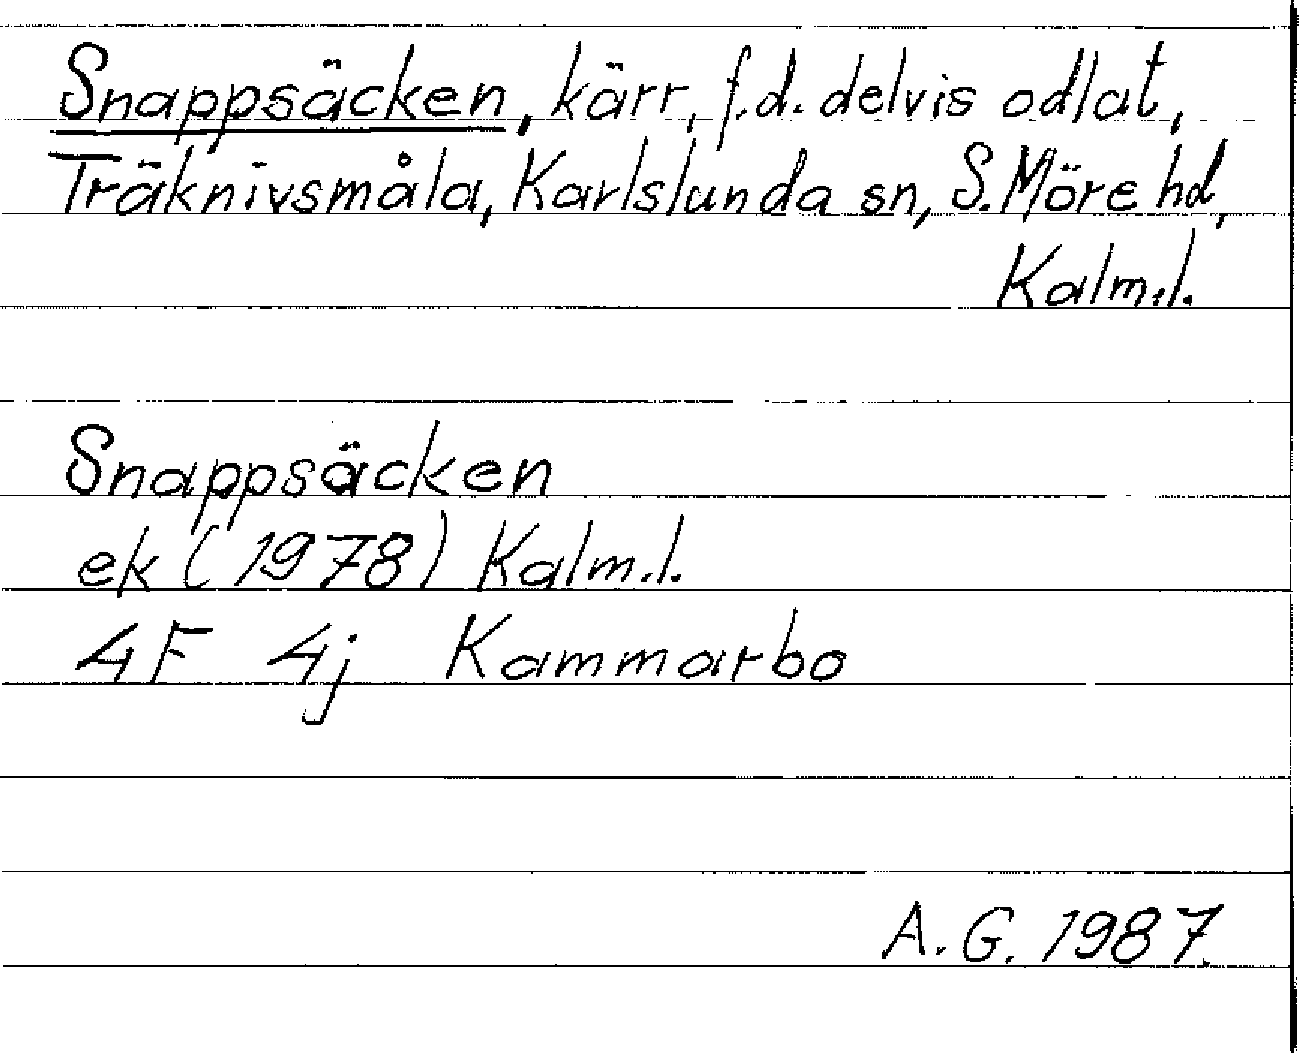 Snappsäcken, kärr, f.d. delvis odlat,
Träknivsmåla, Karlslunda sn, S. Möre hd,
Kalm.l.
Snappsäcken
ek (1978) Kalm.l.
4F 4j Kammarbo
A.G. 1987.